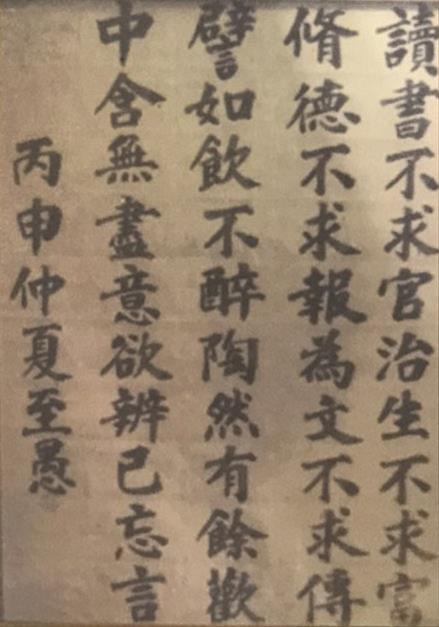 讀書不求官治生不求富
脩德不求報為文不求傳
譬如飲不醉陶然有餘歡
中含無盡意欲辨已忘言
丙申仲夏至愚